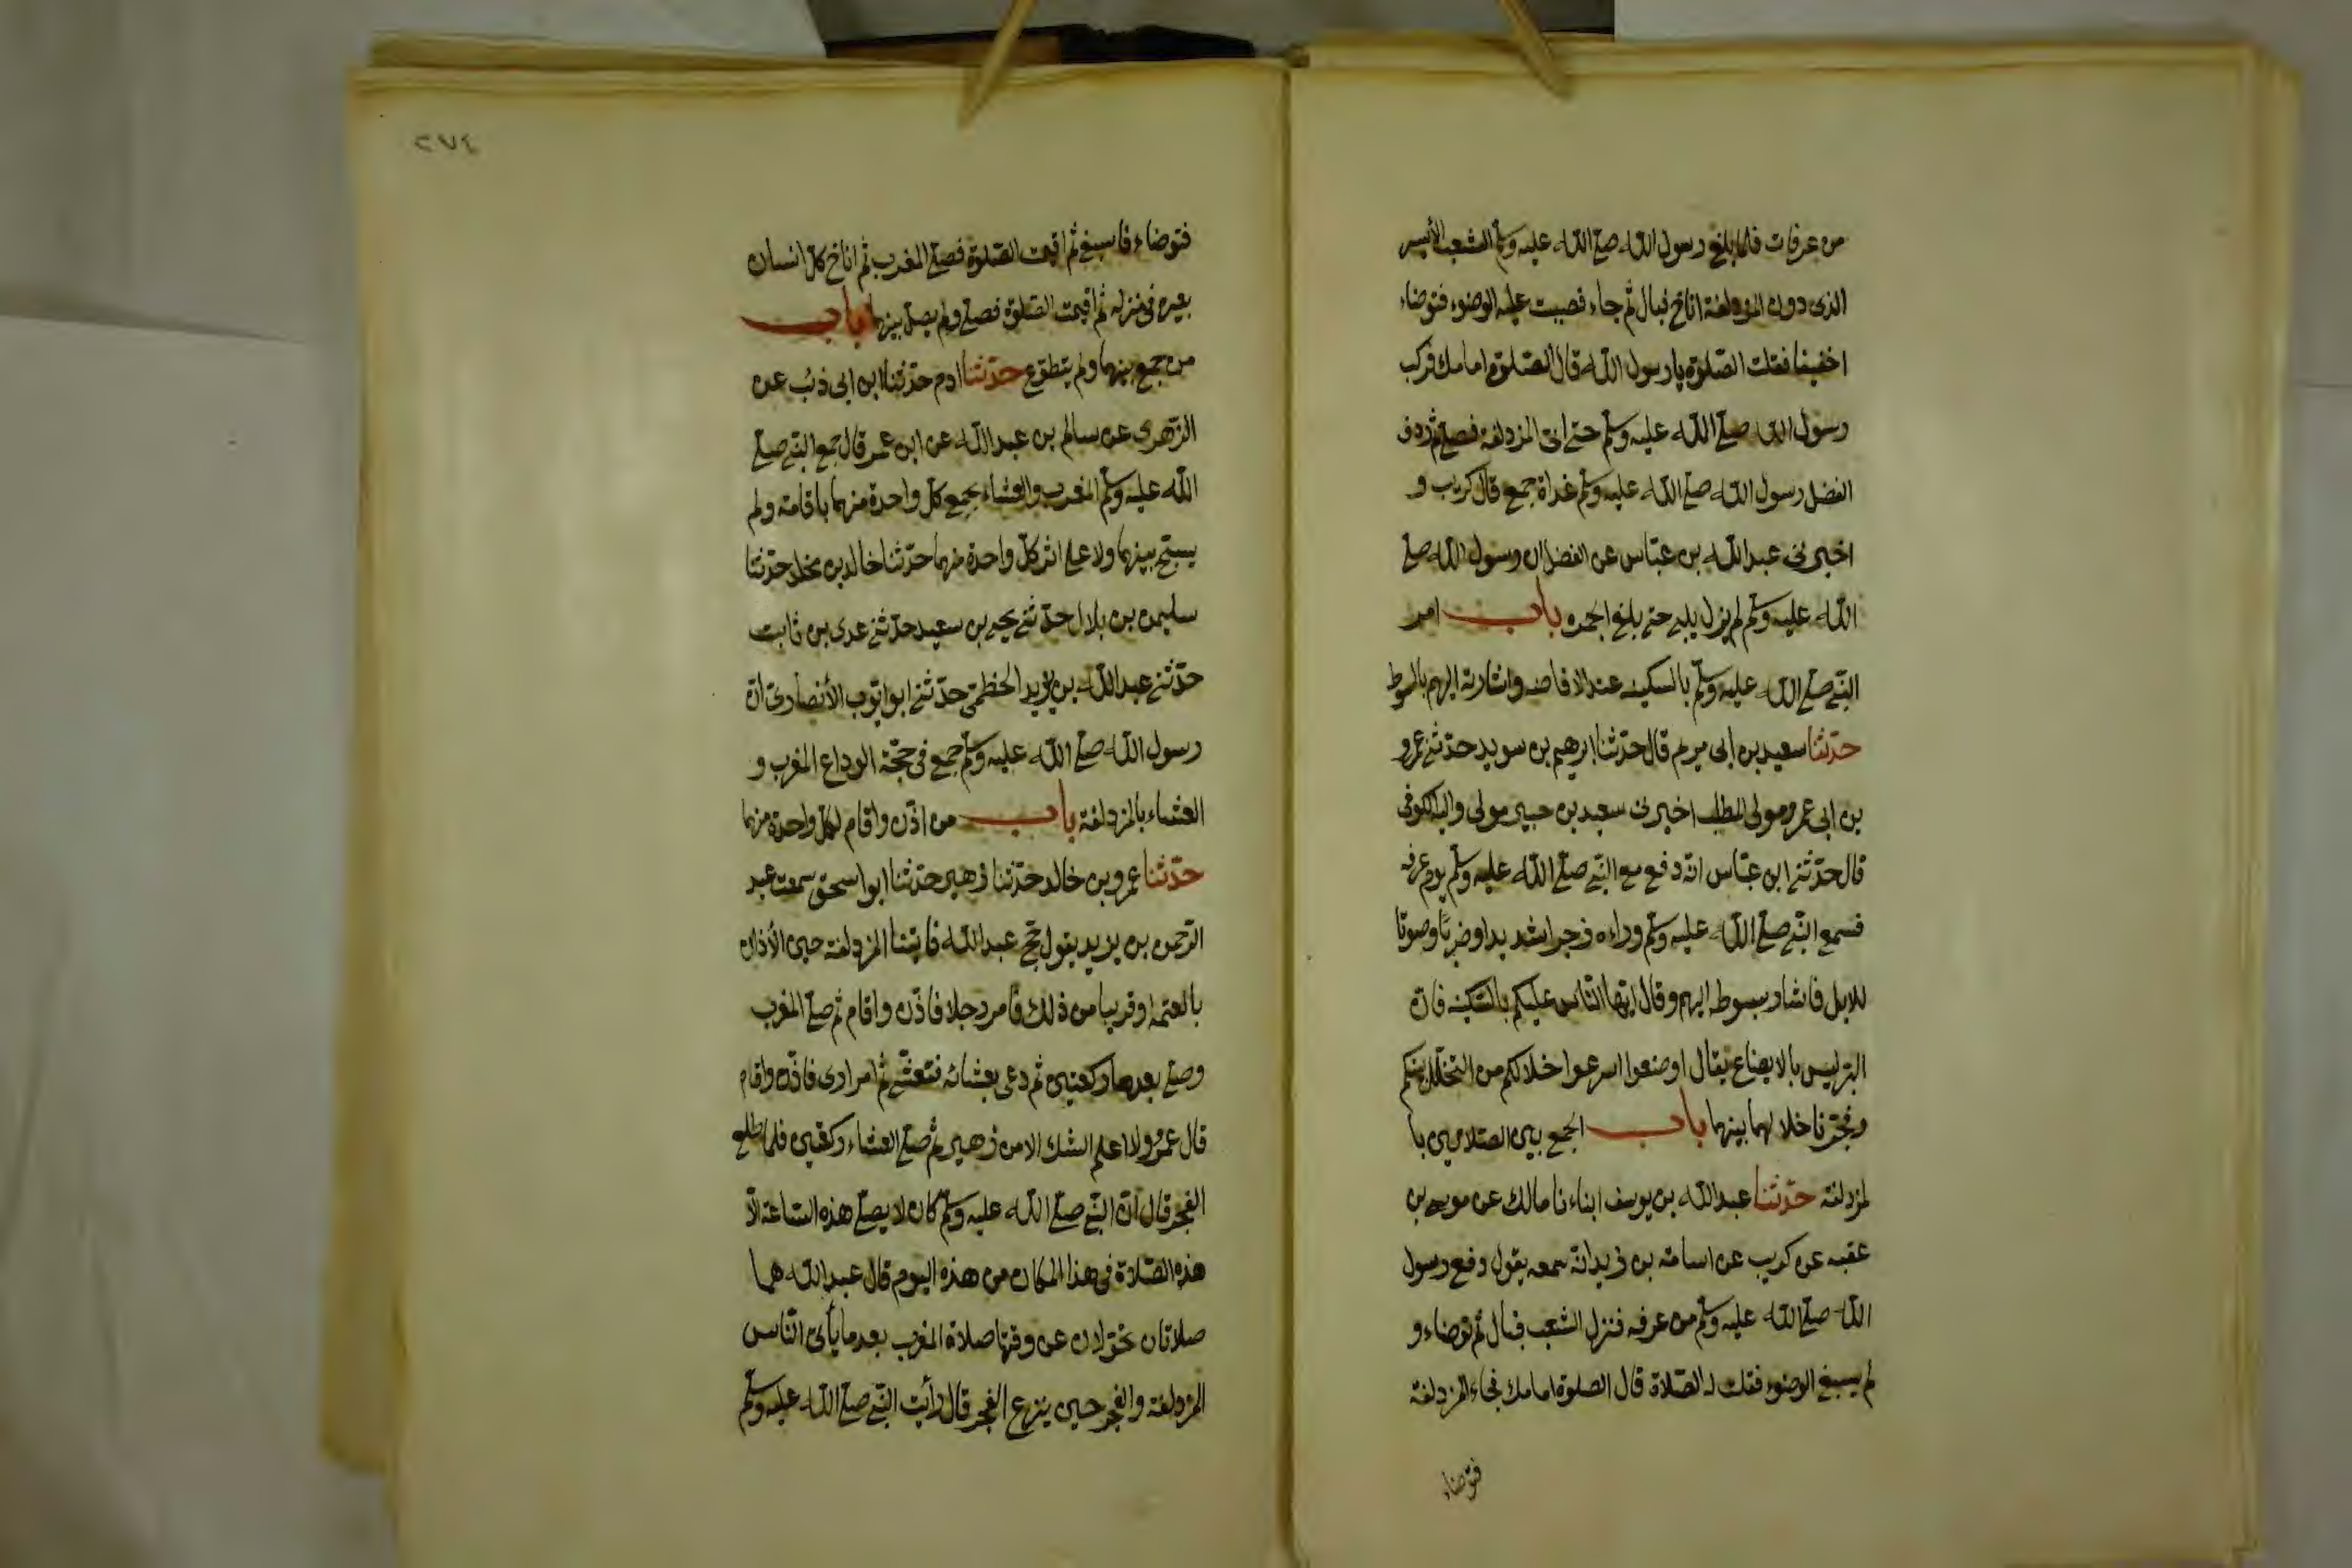 من عرفات فلما بلغ رسول الله صلى الله عليه وسلم الشعب الأيسر
الذى دون المزدلفة اناخ فبال ثم جاء فصببت عليه الوضوء فتوضاء
اخفيفا فقلت الصلوة يا رسول الله قال الصلوة امامك فركب
رسول الله صلى الله عليه وسلم حتى اتى المزدلفة فصلى ثم ردف
الفضل رسول الله صلى الله عليه وسلم غداة جمع قال كريب و
اخبرنى عبد الله بن عباس عن الفضل ان رسول الله صلى
الله عليه وسلم لم يزل يلبى حتى بلغ الجمره باب امر
النبى صلى الله عليه وسلم بالسكينه عند الافاضه واشارته اليهم بالسوط
حدثنا سعيد بن ابى مريم قال حدثنا ابرهيم بن سويد حدثنى عمرو
بن ابى عمرو مولى المطلب اخبرنى سعيد بن جبير مولى والبة الكوفى
قال حدثنى ابن عباس انه دفع مع النبى صلى الله عليه وسلم يوم عرفه
فسمع النبى صلى الله عليه وسلم وراءه زجرا شديدا وضربا وصوتا
للابل فاشار بسوطه اليهم وقال ايها الناس عليكم بالسكينه فان
البر ليس بالايضاع يقال اوضعوا اسرعوا خلالكم من التخلل بينكم
وفجرنا خلالهما بينهما باب الجمع بين الصلاتين با
لمزدلفة حدثنا عبد الله بن يوسف ابناءنا مالك عن موسى بن
عقبه عن كريب عن اسامة بن زيد انه سمعه يقول دفع رسول
الله صلى الله عليه وسلم من عرفه فنزل الشعب فبال ثم توضاء و
لم يسبغ الوضوء فقلت له الصلاة قال الصلوة امامك فجاء المزدلفة
فتوضاء
٢٧٤
فتوضاء فاسبغ ثم اقيمت الصلوة فصلى المغرب ثم اناخ كل انسان
بعيره فى منزله ثم اقيمت الصلوة فصلى ولم يصل بينهما باب
من جمع بينهما ولم يتطوع حدثنا ادم حدثنا ابن ابى ذئب عن
الزهرى عن سالم بن عبد الله عن ابن عمر قال جمع النبى صلى
الله عليه وسلم المغرب والعشاء بجمع كل واحدة منهما باقامة ولم
يسبح بينهما ولا على اثر كل واحدة منهما حدثنا خالد بن مخلد حدثنا
سليمن بن بلال حدثنى يحيى بن سعيد حدثنى عدى بن ثابت
حدثنى عبد الله بن يزيد الخطمى حدثنى ابو ايوب الأنصارى ان
رسول الله صلى الله عليه وسلم جمع فى حجة الوداع المغرب و
العشاء بالمزدلفة باب من اذن واقام لكل واحدة منهما
حدثنا عمرو بن خالد حدثنا زهير حدثنا ابو اسحق سمعت عبد
الرحمن بن يزيد يقول حج عبد الله فاتينا المزدلفة حين الأذان
بالعتمة او قريبا من ذلك فامر رجلا فاذن واقام ثم صلى المغرب
وصلى بعدها ركعتين ثم دعى بعشائه فتعشى ثم امر ارى فاذن واقام
قال عمرو ولا اعلم الشك الا من زهير ثم صلى العشاء ركعتين فلما طلع
الفجر قال ان النبى صلى الله عليه وسلم كان لا يصلى هذه الساعة الا
هذه الصلاة فى هذا المكان من هذه اليوم قال عبد الله هما
صلاتان تحولان عن وقتها صلاة المغرب بعد ما يأتى الناس
المزدلفة والفجر حين ينزع الفجر قال رأيت النبى صلى الله عليه وسلم